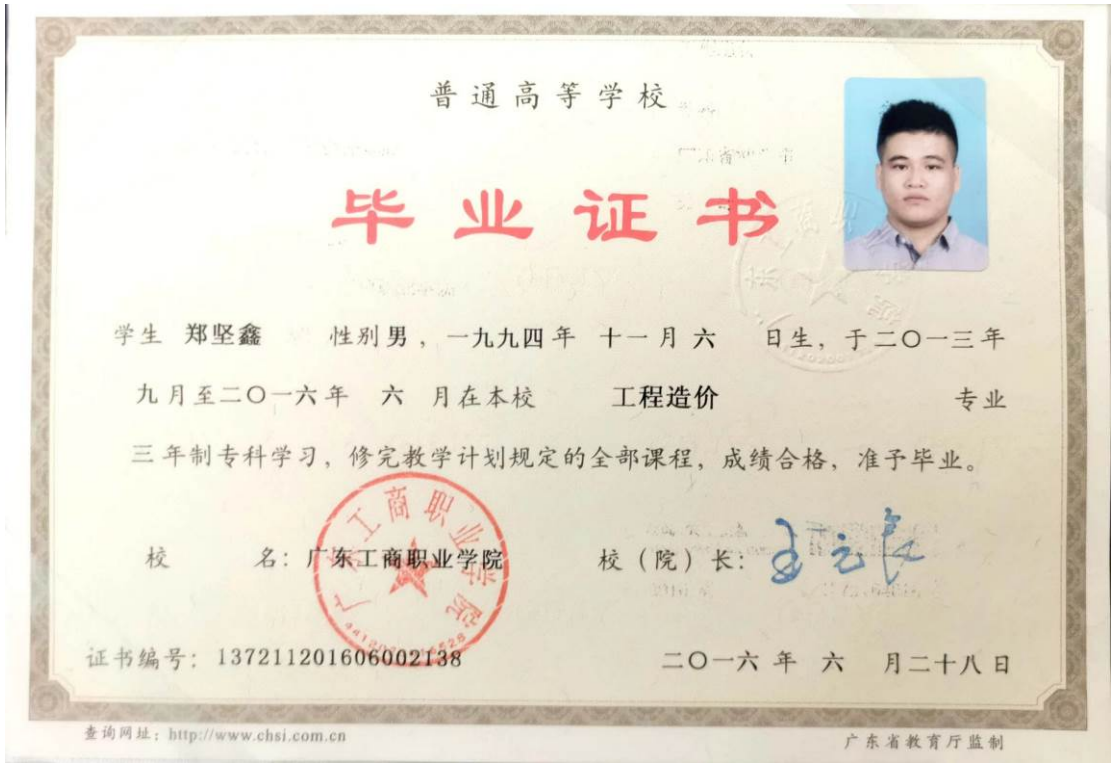 普通高等学校
毕业证书
学生 郑坚鑫 性别男，一九九四年 十一月六 日生，于二〇一三年
九月至二〇一六年 六 月在本校 工程造价 专业
三年制专科学习，修完教学计划规定的全部课程，成绩合格，准予毕业。
校 名：广东工商职业学院 校（院）长：
广东工商职业学院
证书编号：137211201606002138 二〇一六年 六 月二十八日
查询网址：http://www.chsi.com.cn 广东省教育厅监制